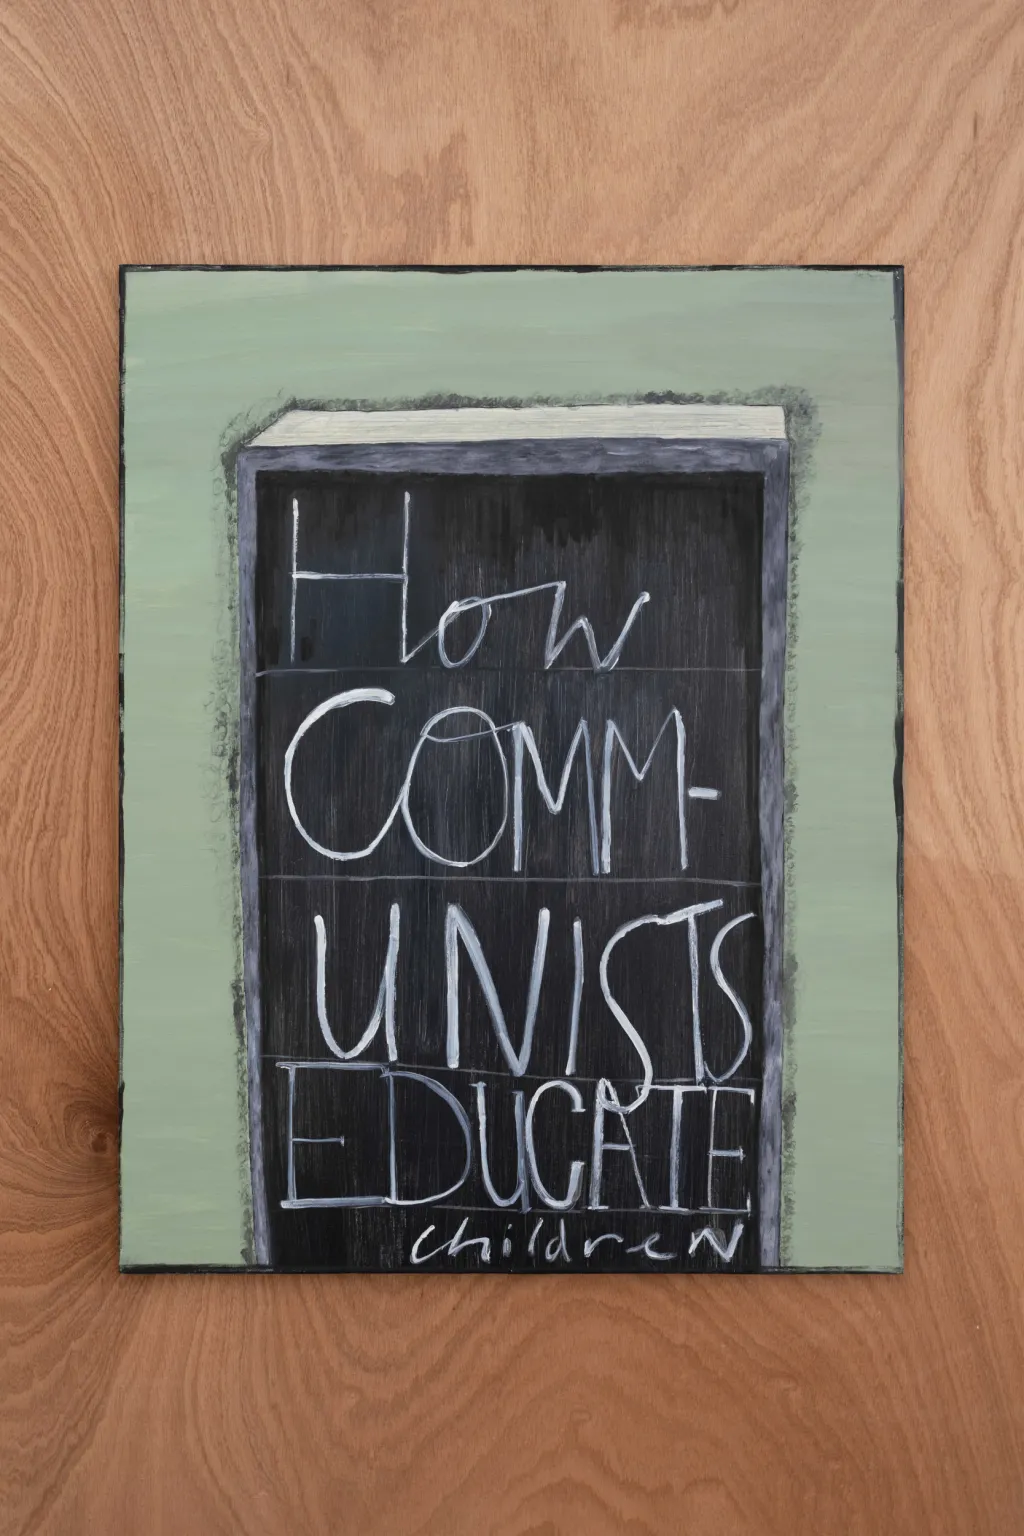 How
COMM-
UNISTS
EDUCATE
children